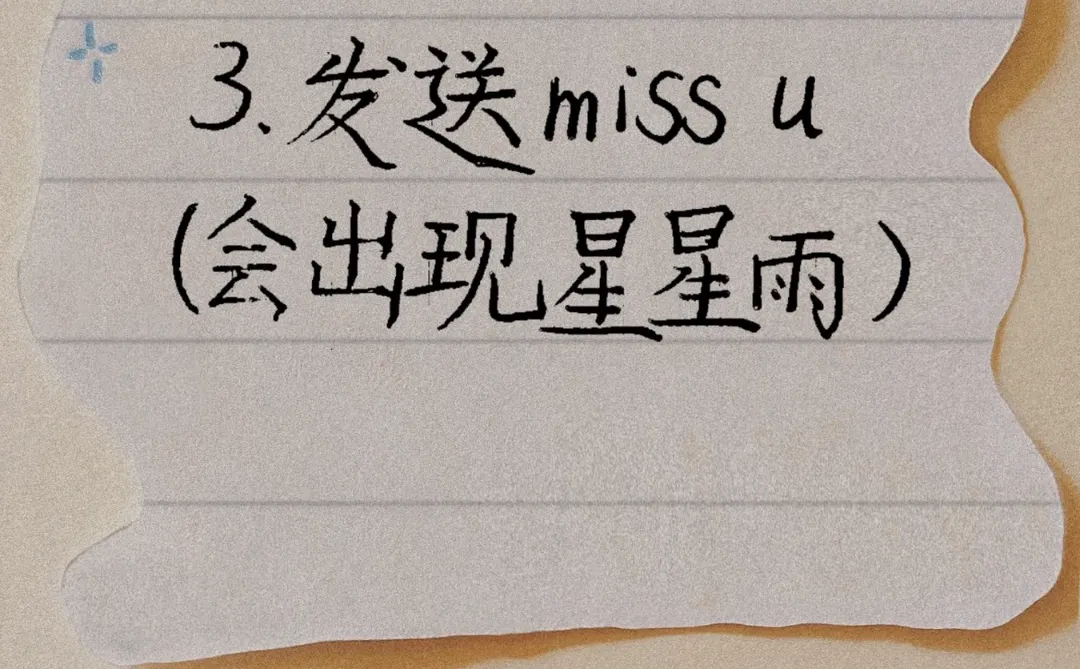 3.发送miss u
(会出现星星雨)